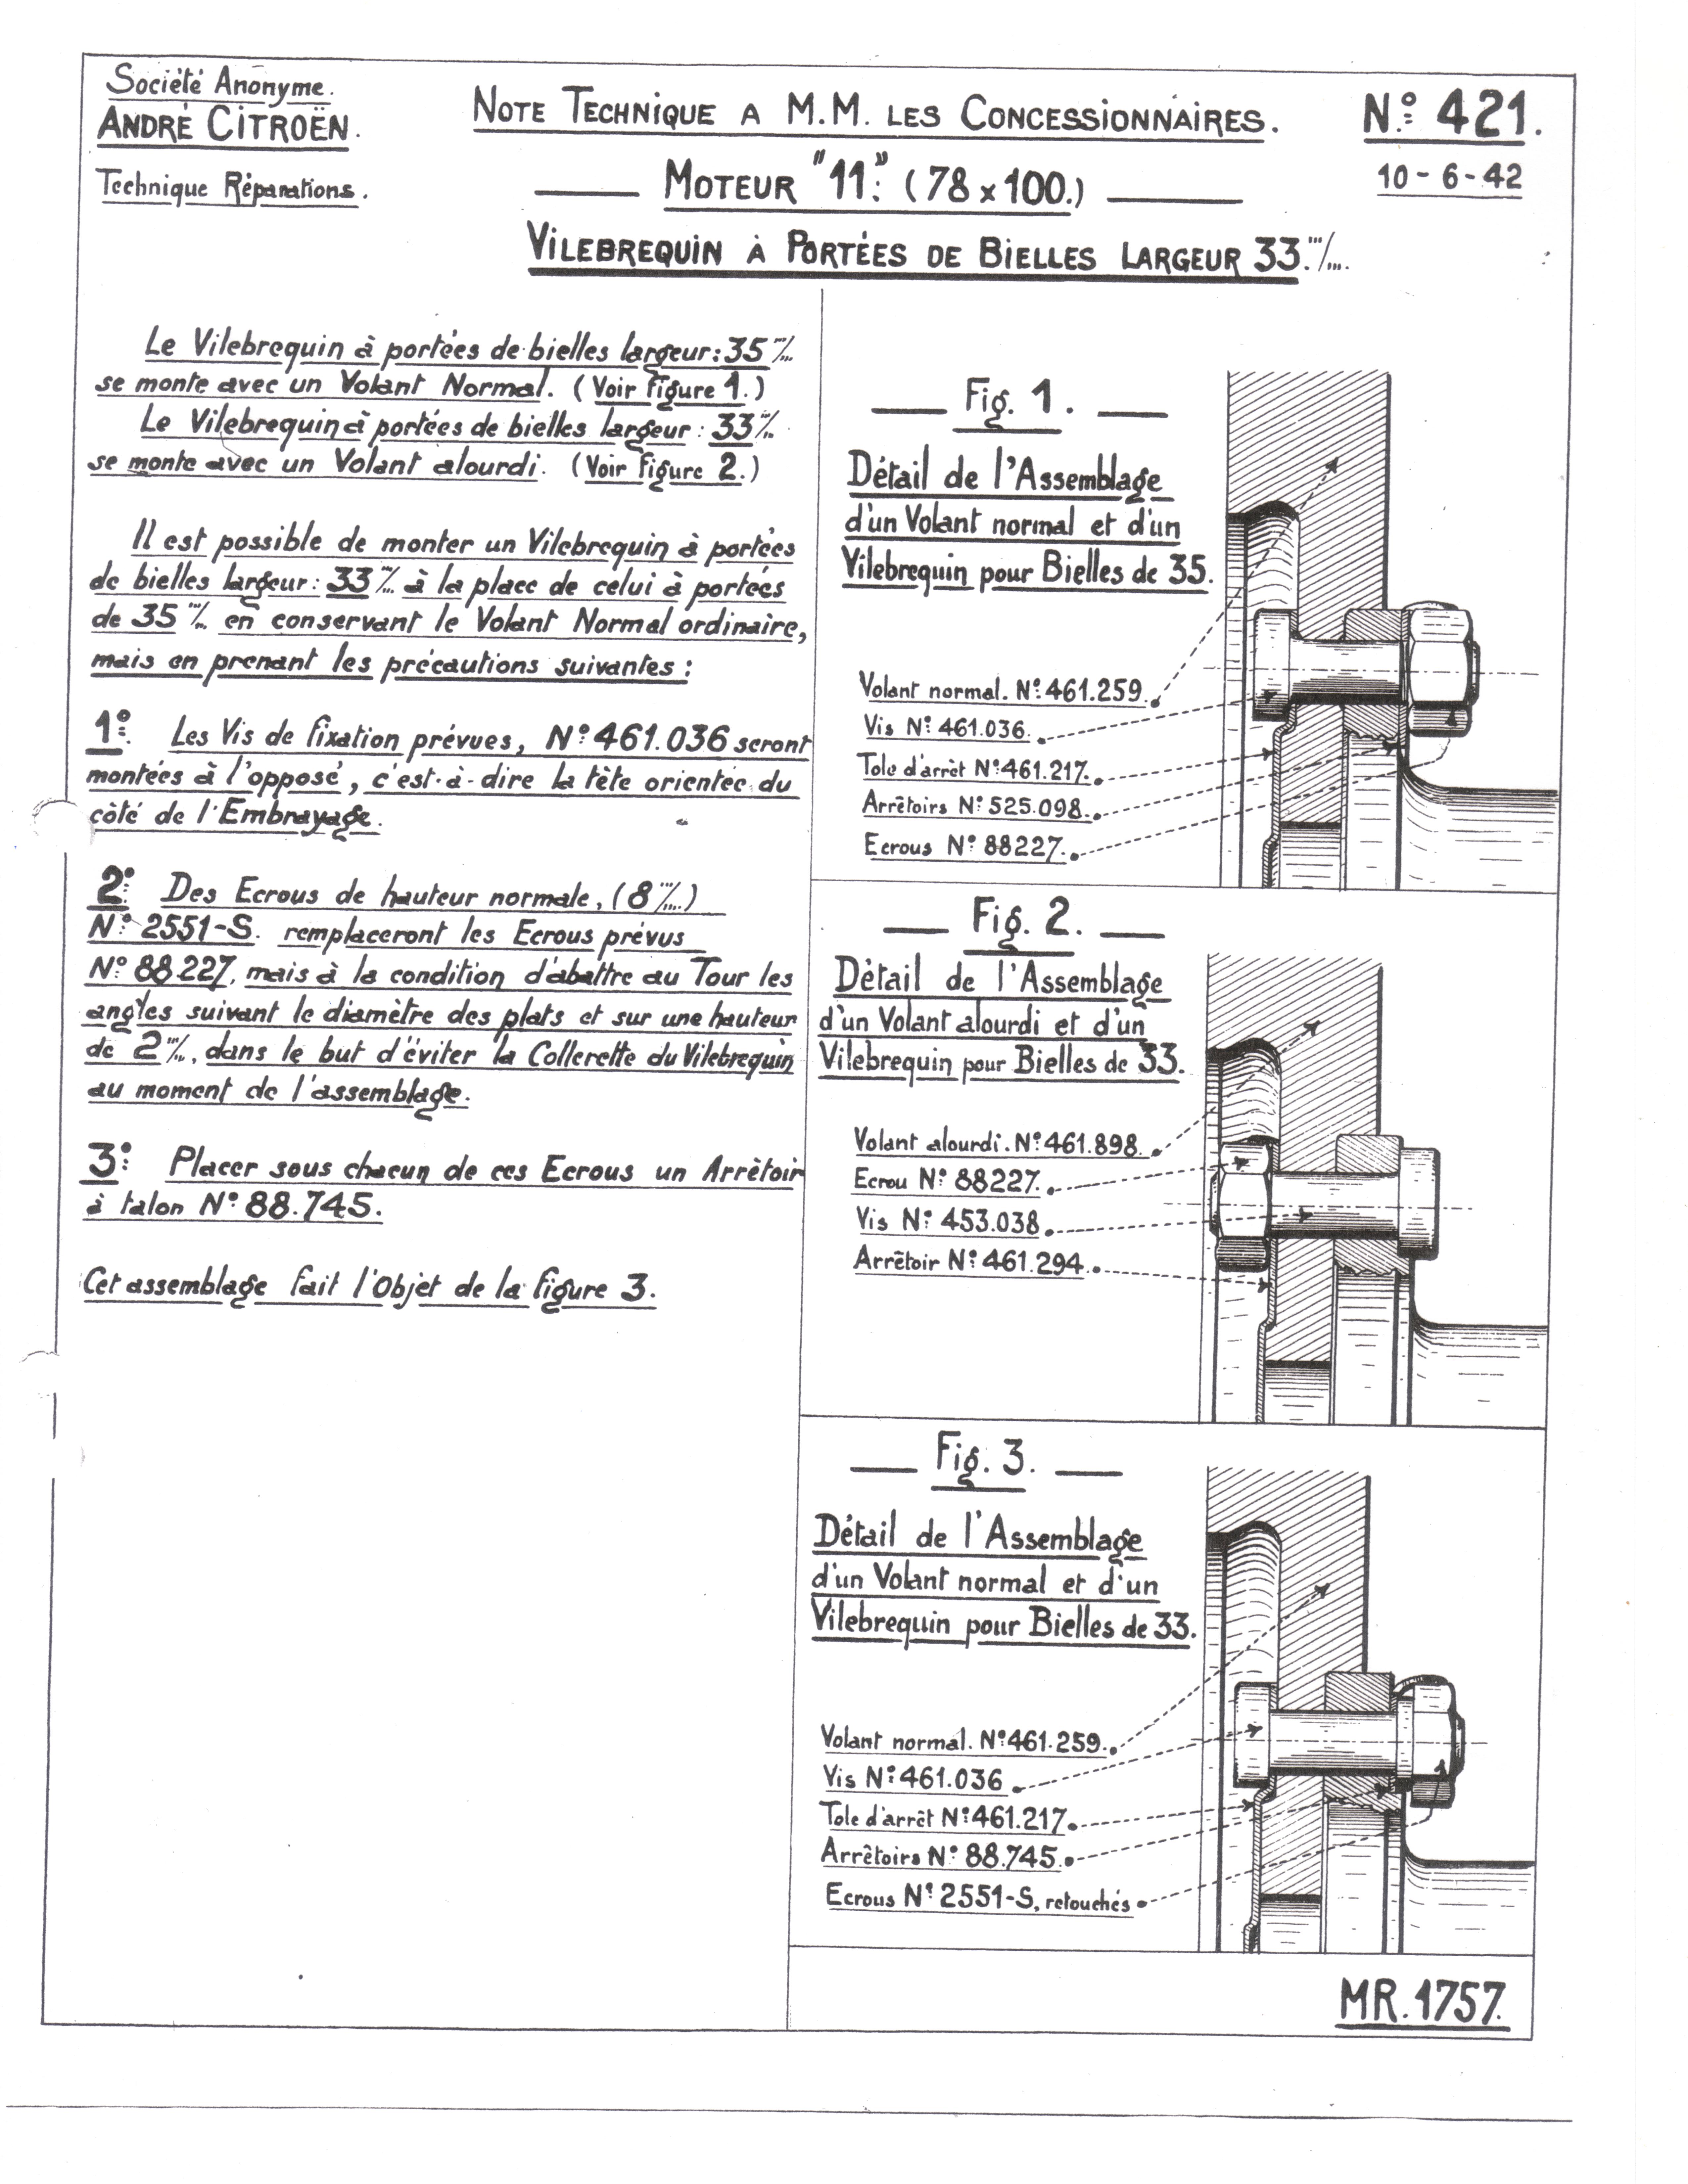 Société Anonyme.
ANDRÉ CITROËN.
Technique Réparations.
NOTE TECHNIQUE A M.M. LES CONCESSIONNAIRES.
MOTEUR "11". (78 x 100.)
VILEBREQUIN À PORTÉES DE BIELLES LARGEUR 33.m/m.
N° 421.
10-6-42
Le Vilebrequin à portées de bielles largeur: 35 m/m.
se monte avec un Volant Normal. (Voir figure 1.)
Le Vilebrequin à portées de bielles largeur: 33 m/m.
se monte avec un Volant alourdi. (Voir figure 2.)
Il est possible de monter un Vilebrequin à portées
de bielles largeur: 33 m/m. à la place de celui à portées
de 35 m/m. en conservant le Volant Normal ordinaire,
mais en prenant les précautions suivantes:
1° Les Vis de fixation prévues, N° 461.036 seront
montées à l'opposé, c'est-à-dire la tête orientée du
côté de l'Embrayage.
2° Des Ecrous de hauteur normale, (8 m/m.)
N° 2551-S. remplaceront les Ecrous prévus
N° 88.227, mais à la condition d'abattre au Tour les
angles suivant le diamètre des plats et sur une hauteur
de 2 m/m., dans le but d'éviter la Collerette du Vilebrequin
au moment de l'assemblage.
3° Placer sous chacun de ces Ecrous un Arrêtoir
à talon N° 88.745.
Cet assemblage fait l'Objet de la figure 3.
Fig. 1.
Détail de l'Assemblage
d'un Volant normal et d'un
Vilebrequin pour Bielles de 35.
Volant normal. N° 461.259.
Vis N° 461.036.
Tole d'arrêt N° 461.217.
Arrêtoirs N° 525.098.
Ecrous N° 88227.
Fig. 2.
Détail de l'Assemblage
d'un Volant alourdi et d'un
Vilebrequin pour Bielles de 33.
Volant alourdi. N° 461.898.
Ecrou N° 88227.
Vis N° 453.038.
Arrêtoir N° 461.294.
Fig. 3.
Détail de l'Assemblage
d'un Volant normal et d'un
Vilebrequin pour Bielles de 33.
Volant normal. N° 461.259.
Vis N° 461.036
Tole d'arrêt N° 461.217.
Arrêtoirs N° 88.745.
Ecrous N° 2551-S, retouchés
MR.1757.